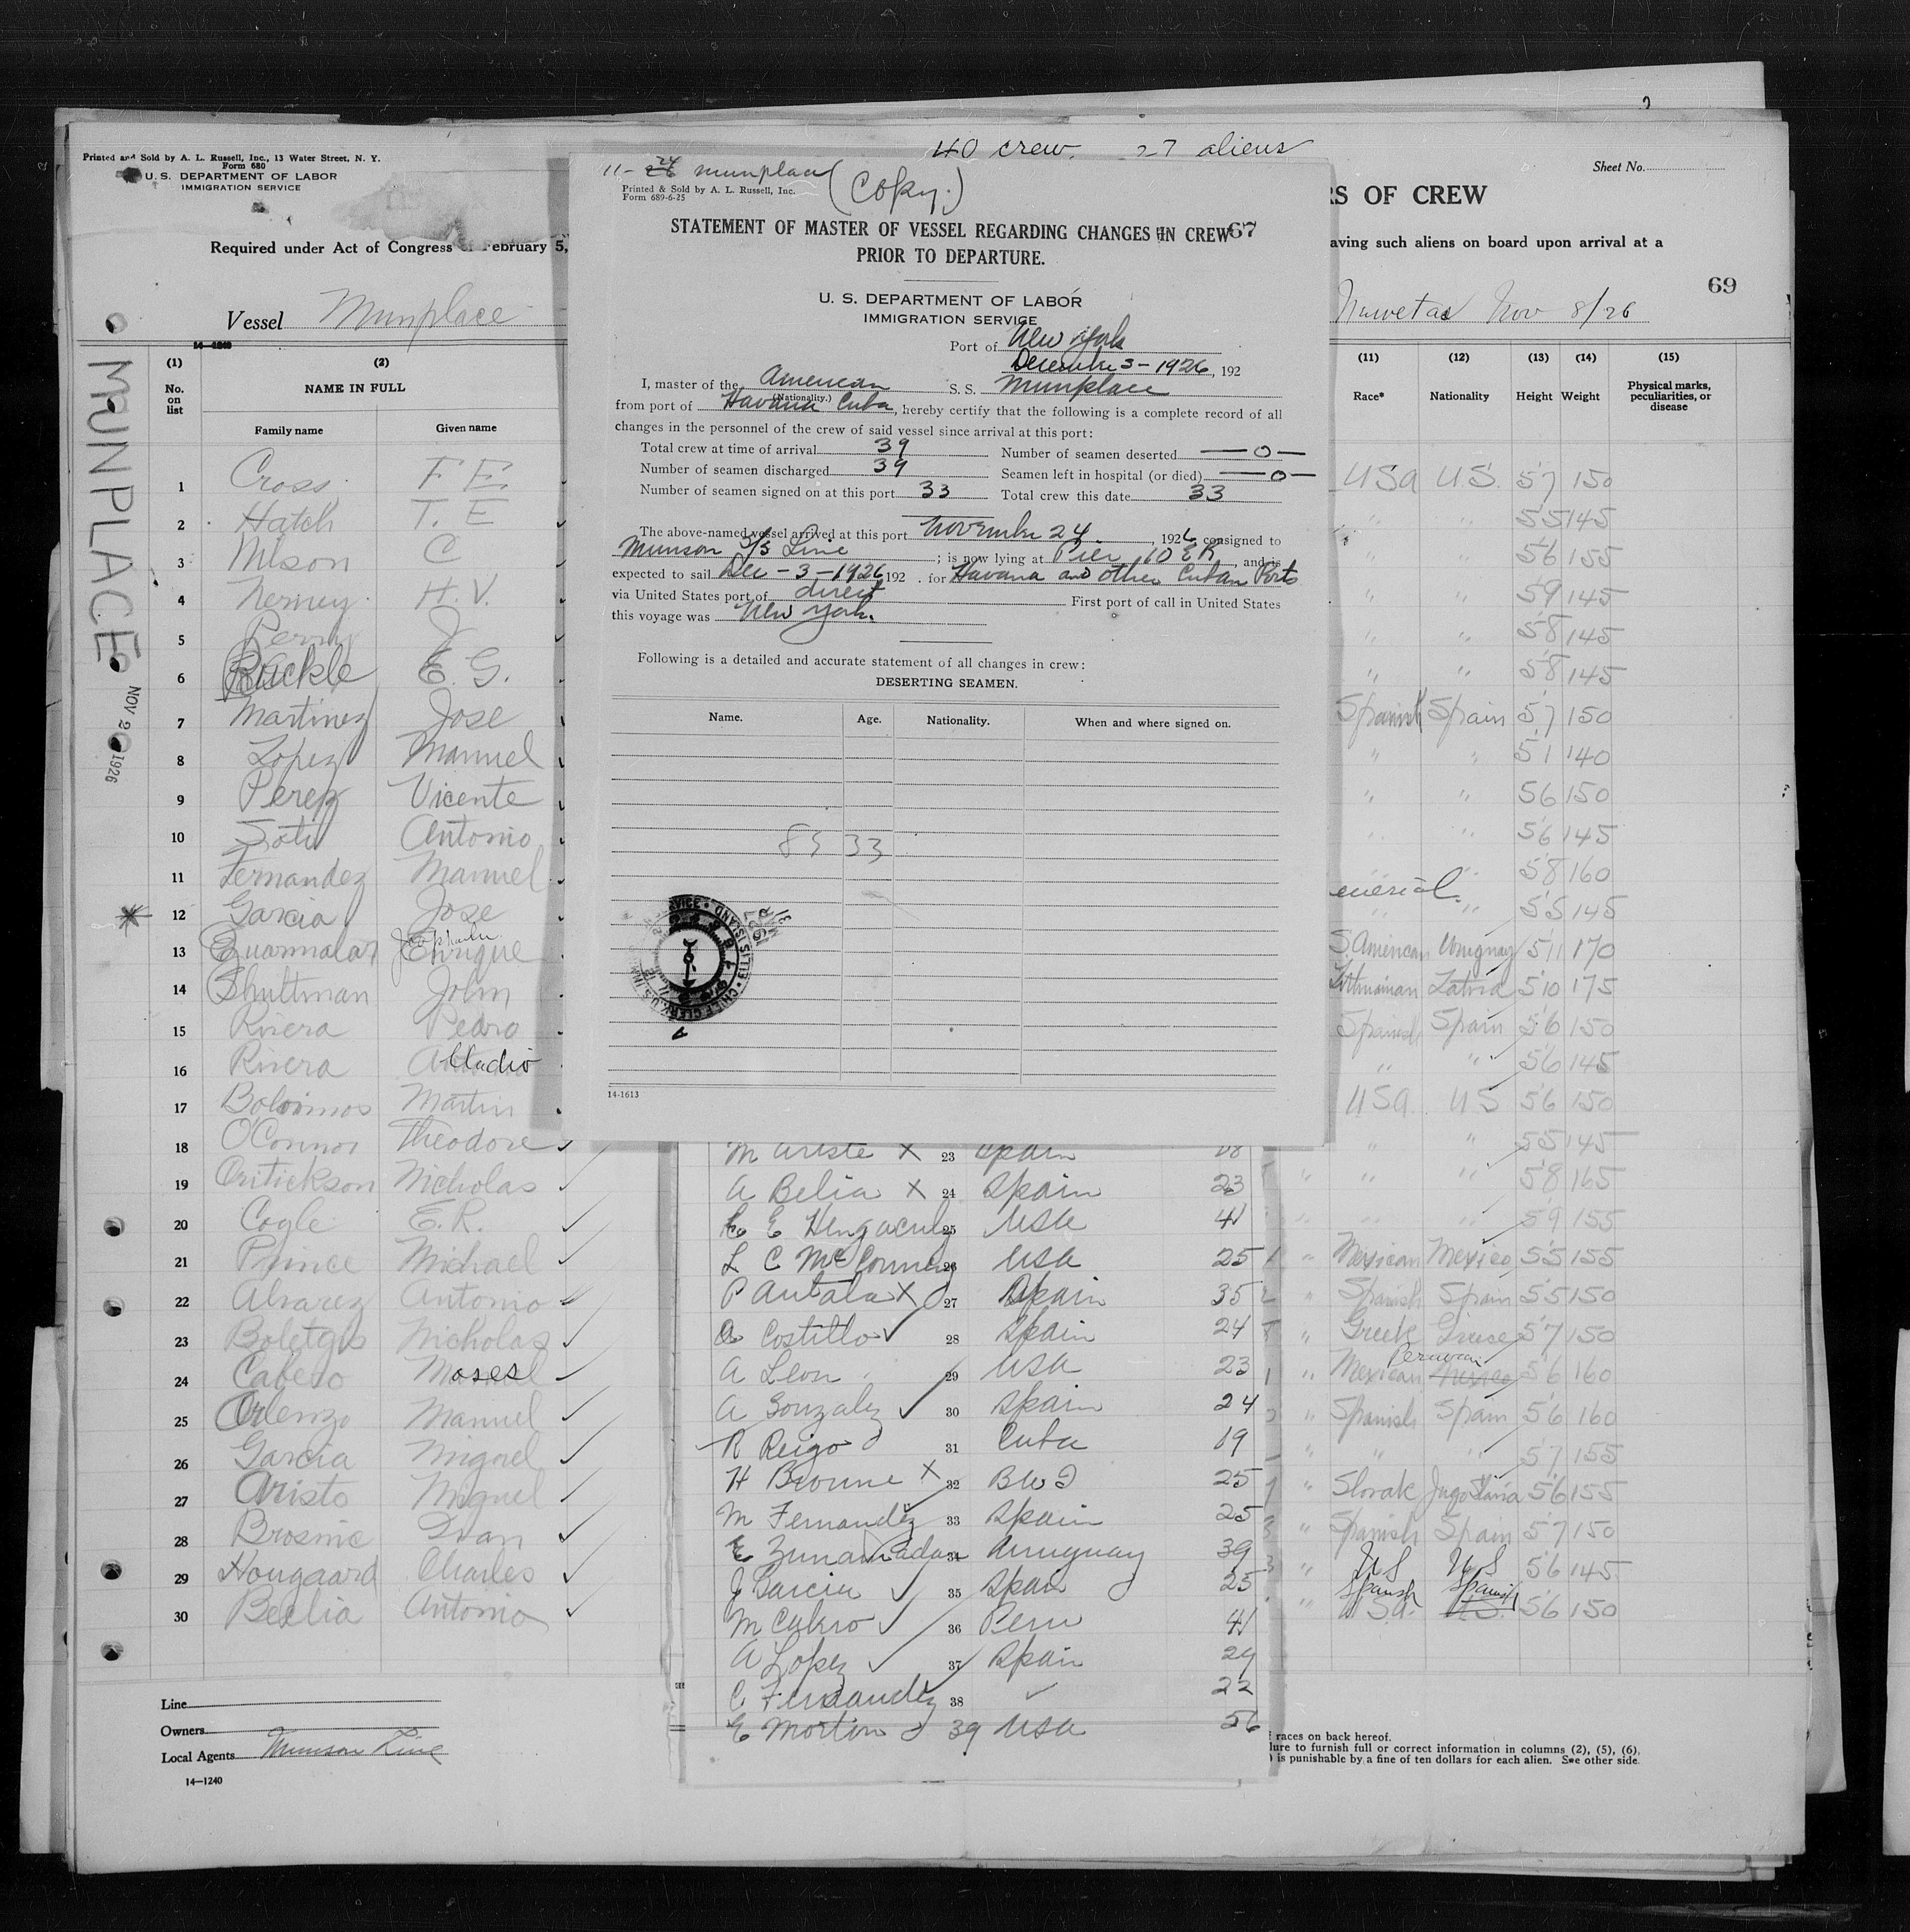 40 crew. 27 aliens
Printed and Sold by A. L. Russell, Inc., 13 Water Street, N. Y.
Form 680
U. S. DEPARTMENT OF LABOR
IMMIGRATION SERVICE
Required under Act of Congress of February 5,
Vessel Munplace
14—1240
(1) (2)
No. on list
NAME IN FULL
Family name Given name
1 Cross F E.
2 Hatch T. E
3 Nilson C
4 Nerney H. V.
5 Perry J
6 Ruckle E. G.
7 Martinez Jose
8 Lopez Manuel
9 Perez Vicente
10 Soto Antonio
11 Fernandez Manuel
12 Garcia Jose
13 Enrique
14 Shultman John
15 Rivera Pedro
16 Rivera
17 Martin
18 O'Connor Theodore
19 Nicholas
20 Cogle E. R.
21 Prince Michael
22 Alvarez Antonio
23 Nicholas
24 Cabero Moses
25 Manuel
26 Garcia Miguel
27 Aristo Miguel
28 Brosnic Ivan
29 Hougaard Charles
30 Beelia Antonio
Line
Owners
Local Agents Munson Line
14—1240
MUNPLACE
NOV 2 1926
11-24 munplace (Copy.)
Printed & Sold by A. L. Russell, Inc.
Form 689-6-25
STATEMENT OF MASTER OF VESSEL REGARDING CHANGES IN CREW 67
PRIOR TO DEPARTURE.
U. S. DEPARTMENT OF LABOR
IMMIGRATION SERVICE
Port of New York
December 3-1926, 192
I, master of the American S. S. Munplace
(Nationality.)
from port of Havana Cuba, hereby certify that the following is a complete record of all
changes in the personnel of the crew of said vessel since arrival at this port:
Total crew at time of arrival 39 Number of seamen deserted —0—
Number of seamen discharged 39 Seamen left in hospital (or died) —0—
Number of seamen signed on at this port 33 Total crew this date 33
The above-named vessel arrived at this port November 24, 1926 consigned to
Munson S/S Line; is now lying at Pier 10 E R, and is
expected to sail Dec-3-1926 192 . for Havana and other Cuban Ports
via United States port of direct First port of call in United States
this voyage was New York.
Following is a detailed and accurate statement of all changes in crew:
DESERTING SEAMEN.
Name. Age. Nationality. When and where signed on.
83 33
14-1613
M Ariste X 23 Spain
A Belia X 24 Spain 23
25 USA 41
26 USA 25
P Antala X 27 Spain 35
A Costillo 28 Spain 24
A Leon 29 USA 23
A Gonzalez 30 Spain 24
R Reigo 31 Cuba 19
H Browne X 32 B W I 25
M Fernandez 33 Spain 25
34 Uruguay 39
J Garcia 35 Spain 25
M Cabero 36 Peru 41
A Lopez 37 Spain 29
C Fernandez 38 22
E Morton 39 USA 56
Sheet No.
RS OF CREW
aving such aliens on board upon arrival at a
69
Nuvetas Nov 8/26
(11) (12) (13) (14) (15)
Race* Nationality Height Weight Physical marks, peculiarities, or disease
USA U.S. 57 150
" " 55 145
" " 56 155
" " 59 145
" " 58 145
" " 58 145
Spanish Spain 57 150
" " 51 140
" " 56 150
" " 56 145
" " 58 160
" " 55 145
S. American Uruguay 511 170
Lithuanian Latvia 510 175
Spanish Spain 56 150
" " 56 145
USA US 56 150
" " 55 145
" " 58 165
" " 59 155
Mexican Mexico 55 155
Spanish Spain 55 150
Greek Greece 57 150
Peruvian
Mexican Mexico 56 160
Spanish Spain 56 160
" " 57 155
Slovak 56 155
Spanish Spain 57 150
US US 56 145
Spanish Spanish
USA. US. 56 150
races on back hereof.
lure to furnish full or correct information in columns (2), (5), (6),
) is punishable by a fine of ten dollars for each alien. See other side.